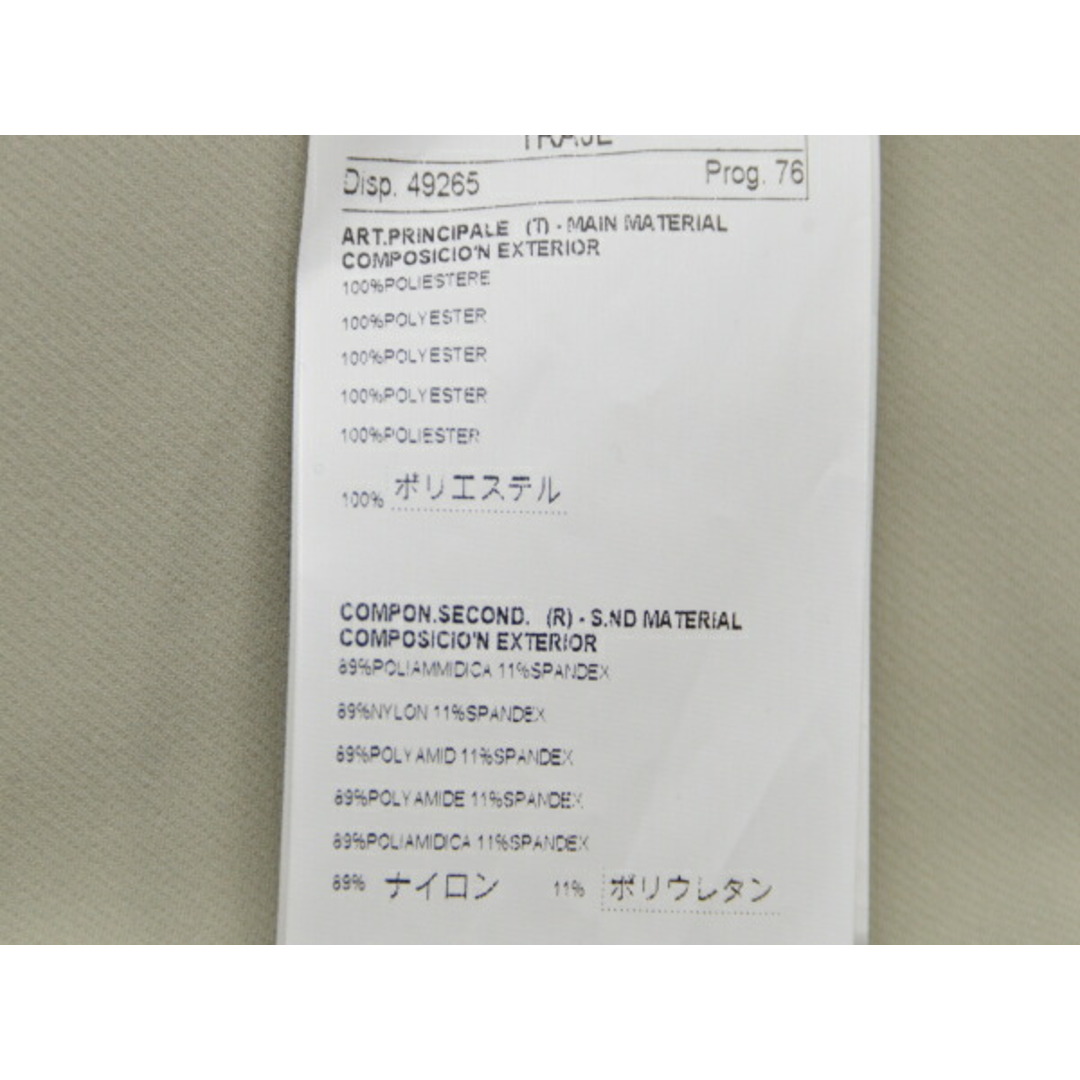 TRAJE
Disp. 49265 Prog. 76
ART.PRINCIPALE (T) - MAIN MATERIAL
COMPOSICIO'N EXTERIOR
100%POLIESTERE
100%POLYESTER
100%POLYESTER
100%POLYESTER
100%POLIESTER
100% ポリエステル
COMPON.SECOND. (R) - S.ND MATERIAL
COMPOSICIO'N EXTERIOR
89%POLIAMMIDICA 11%SPANDEX
89%NYLON 11%SPANDEX
89%POLYAMID 11%SPANDEX
89%POLYAMIDE 11%SPANDEX
89%POLIAMIDICA 11%SPANDEX
89% ナイロン 11% ポリウレタン